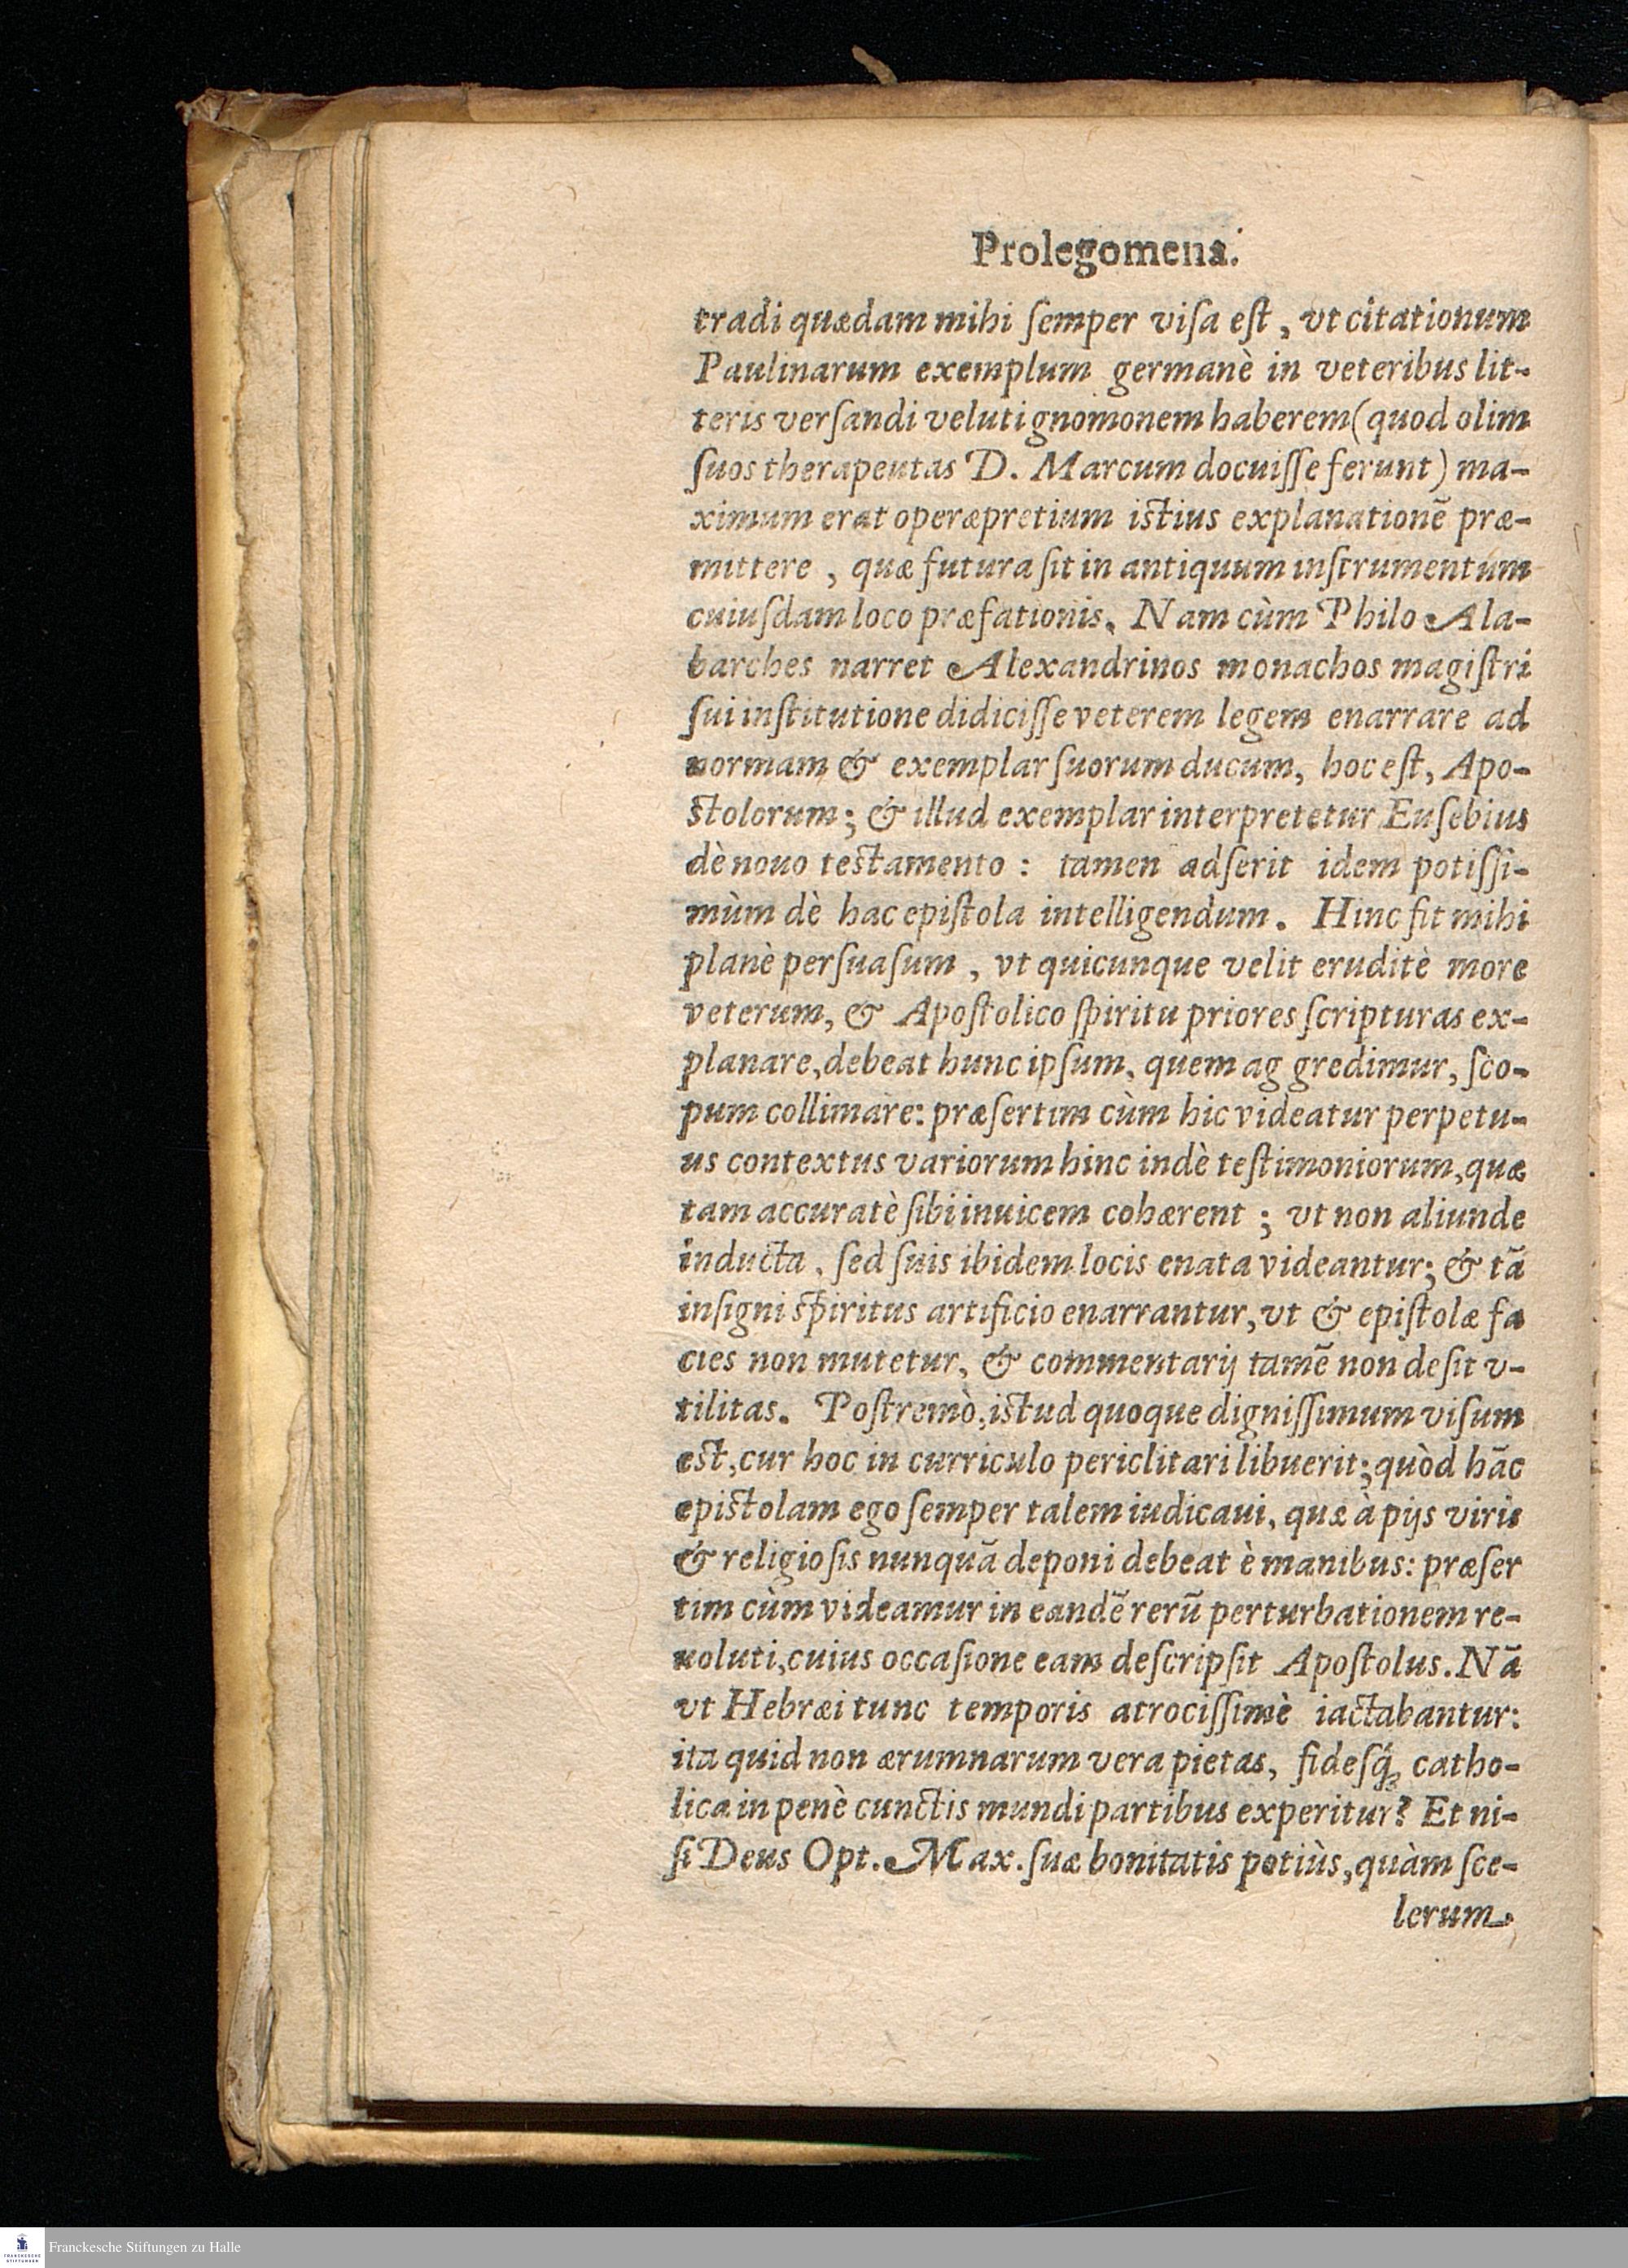 Prolegomena.
tradi quædam mihi ſemper viſa eſt, vt citationum
Paulinarum exemplum germanè in veteribus lit-
teris verſandi veluti gnomonem haberem (quod olim
ſuos therapeutas D. Marcum docuiſſe ferunt) ma-
ximum erat operæpretium iſtius explanationẽ præ-
mittere, quæ futura ſit in antiquum inſtrumentum
cuiuſdam loco præfationis. Nam cùm Philo Ala-
barches narret Alexandrinos monachos magiſtri
ſui inſtitutione didiciſſe veterem legem enarrare ad
normam & exemplar ſuorum ducum, hoc eſt, Apo-
ſtolorum; & illud exemplar interpretetur Euſebius
dè nouo teſtamento: tamen adſerit idem potiſſi-
mùm dè hac epiſtola intelligendum. Hinc fit mihi
planè perſuaſum, vt quicunque velit eruditè more
veterum, & Apoſtolico ſpiritu priores ſcripturas ex-
planare, debeat hunc ipſum, quem ag gredimur, ſco-
pum collimare: præſertim cùm hic videatur perpetu-
us contextus variorum hinc indè teſtimoniorum, quæ
tam accuratè ſibi inuicem cohærent; vt non aliunde
inducta, ſed ſuis ibidem locis enata videantur; & tã
inſigni ſpiritus artificio enarrantur, vt & epiſtolæ fa
cies non mutetur, & commentarij tamẽ non deſit v-
tilitas. Poſtremò, iſtud quoque digniſſimum viſum
eſt, cur hoc in curriculo periclitari libuerit; quòd hãc
epiſtolam ego ſemper talem iudicaui, quæ à pijs viris
& religioſis nunquã deponi debeat è manibus: præſer
tim cùm videamur in eandẽ rerũ perturbationem re-
uoluti, cuius occaſione eam deſcripſit Apoſtolus. Nã
vt Hebræi tunc temporis atrociſſimè iactabantur:
ita quid non ærumnarum vera pietas, fideſq́ꝫ catho-
lica in penè cunctis mundi partibus experitur? Et ni-
ſi Deus Opt. Max. ſuæ bonitatis potiùs, quàm ſce-
lerum
Franckesche Stiftungen zu Halle
FRANCKESCHE
STIFTUNGEN